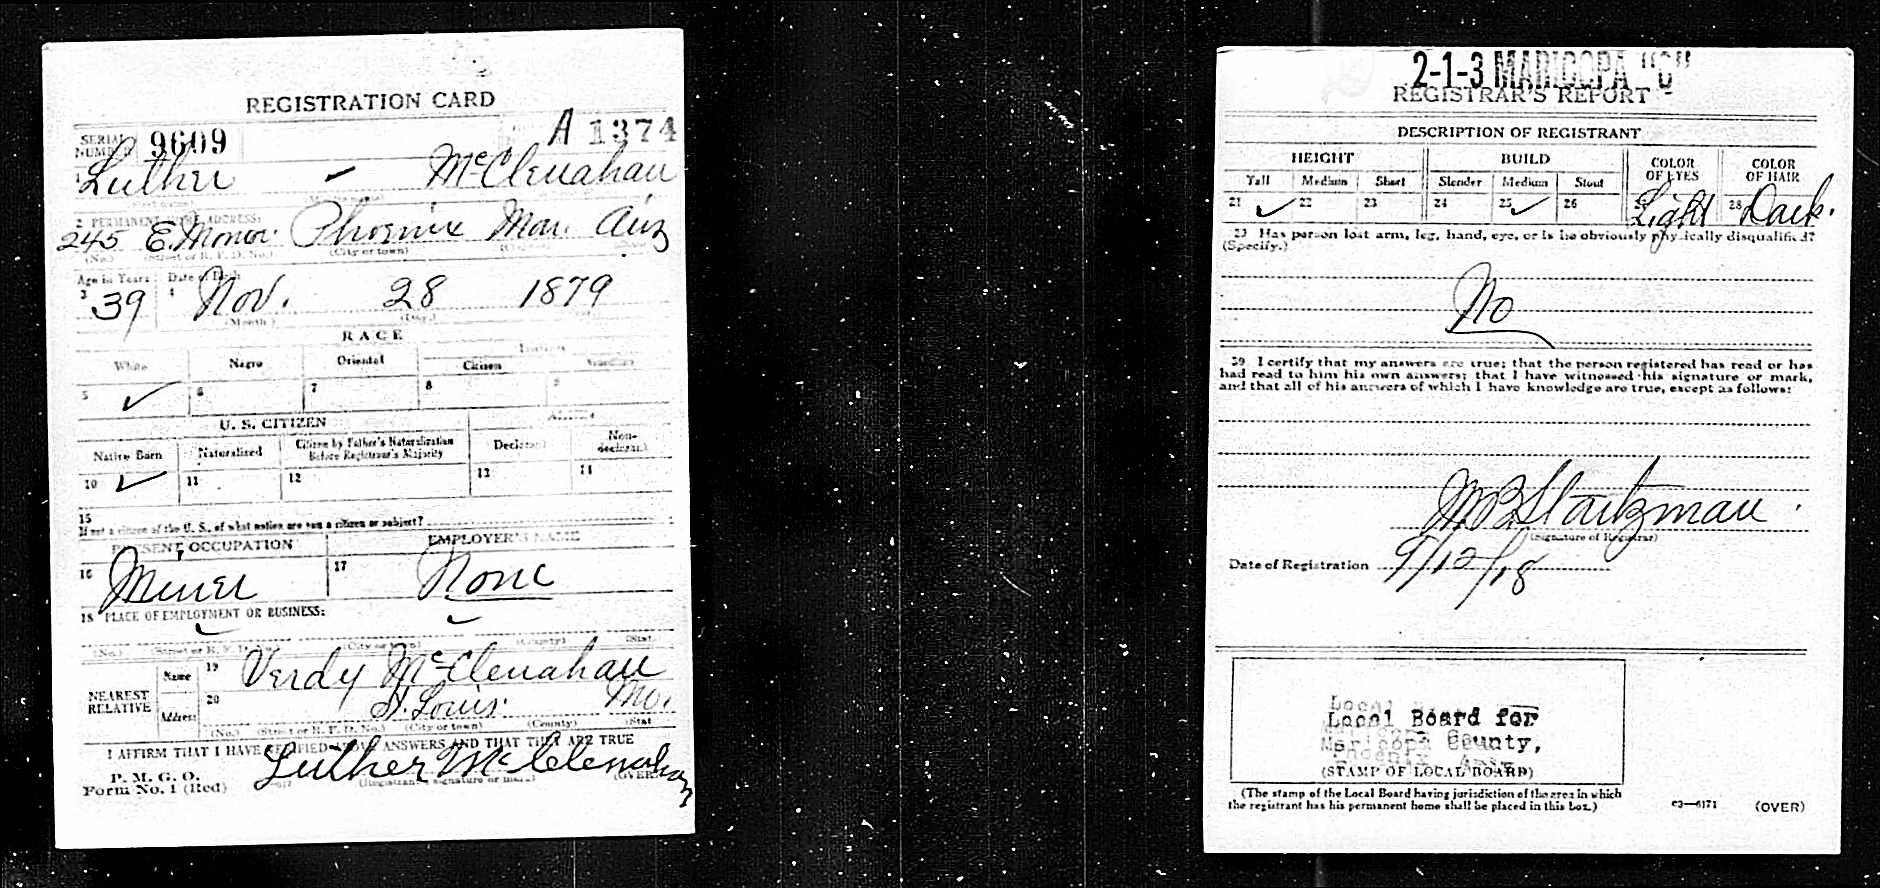 REGISTRATION CARD
SERIAL NUMBER 9609 A 1374
1 Luther ✓ McClenahan
2 PERMANENT HOME ADDRESS:
245 E. Monor. Phoenix Mar. Ariz
(No.) (Street or R. F. D. No.) (City or town)
Age in Years Date of Birth
3 39 4 Nov. 28 1879
(Month) (Day)
RACE
White Negro Oriental Citizen
5 ✓ 6 7 8 9
U. S. CITIZEN
Native Born Naturalized Citizen by Father's Naturalization Before Registrant's Majority Declarant Non-declarant
10 ✓ 11 12 13 14
15
If not a citizen of the U. S., of what nation are you a citizen or subject?
PRESENT OCCUPATION EMPLOYER'S NAME
16 Miner 17 None
18 PLACE OF EMPLOYMENT OR BUSINESS:
(No.) (Street or R. F. D. No.) (City or town) (County) (State)
NEAREST RELATIVE Name 19 Verdy McClenahan
Address 20 St. Louis. Mo.
(No.) (Street or R. F. D. No.) (City or town) (County) (State)
I AFFIRM THAT I HAVE VERIFIED ABOVE ANSWERS AND THAT THEY ARE TRUE
P. M. G. O.
Form No. 1 (Red) Luther McClenahan
(Registrant's signature or mark) (OVER)
2-1-3 MARICOPA "C"
REGISTRAR'S REPORT
DESCRIPTION OF REGISTRANT
HEIGHT BUILD COLOR OF EYES COLOR OF HAIR
Tall Medium Short Slender Medium Stout
21 ✓ 22 23 24 25 ✓ 26 Light 28 Dark.
29 Has person lost arm, leg, hand, eye, or is he obviously physically disqualified?
(Specify.)
No
30 I certify that my answers are true; that the person registered has read or has
had read to him his own answers; that I have witnessed his signature or mark,
and that all of his answers of which I have knowledge are true, except as follows:
(Signature of Registrar)
Date of Registration 9/12/18
Local Board for
Maricopa County,
Phoenix, Ariz.
(STAMP OF LOCAL BOARD)
(The stamp of the Local Board having jurisdiction of the area in which
the registrant has his permanent home shall be placed in this box.)
03—6171 (OVER)